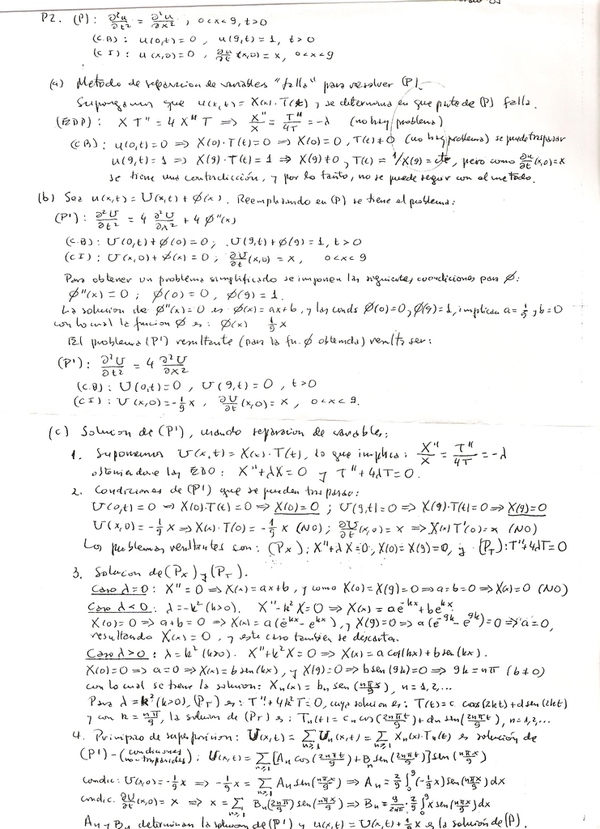 P2. (P): ∂²u/∂t² = ∂²u/∂x² ; 0<x<9, t>0
(C.B): u(0,t)=0 , u(9,t)=1, t>0
(C I): u(x,0)=0 , ∂u/∂t(x,0)=x, 0<x<9
(a) Método de separacion de variables "falla" para resolver (P).
Supongamos que u(x,t)=X(x)·T(t), se determina en que parte de (P) falla.
(EDP): X T'' = 4 X'' T ⇒ X''/X = T''/4T = -λ (no hay problema)
(CB): u(0,t)=0 ⇒ X(0)·T(t)=0 ⇒ X(0)=0, T(t)≠0 (no hay problema) se puede traspasar
u(9,t)=1 ⇒ X(9)·T(t)=1 ⇒ X(9)≠0, T(t)=1/X(9)=cte, pero como ∂u/∂t(x,0)=x
se tiene una contradicción, y por lo tanto, no se puede seguir con el metodo.
(b) Sea u(x,t)=U(x,t)+φ(x). Reemplazando en (P) se tiene el problema:
(P'): ∂²U/∂t² = 4 ∂²U/∂x² + 4 φ''(x)
(C.B): U(0,t)+φ(0)=0; U(9,t)+φ(9)=1, t>0
(C I): U(x,0)+φ(x)=0; ∂U/∂t(x,0)=x, 0<x<9
Para obtener un problema simplificado se imponen las siguientes condiciones para φ:
φ''(x)=0; φ(0)=0, φ(9)=1.
La solucion de φ''(x)=0 es φ(x)=ax+b, y las conds φ(0)=0 y φ(9)=1, implican a=1/9 y b=0
con lo cual la funcion φ es: φ(x) 1/9 x
El problema (P') resultante (para la fn. φ obtenida) resulta ser:
(P'): ∂²U/∂t² = 4 ∂²U/∂x²
(C.B): U(0,t)=0, U(9,t)=0, t>0
(C I): U(x,0)=-1/9 x, ∂U/∂t(x,0)=x, 0<x<9.
(c) Solucion de (P'), usando separacion de variables:
1. Suponemos U(x,t)=X(x)·T(t), lo que implica: X''/X = T''/4T = -λ
obteniendose las EDO: X''+λX=0 y T''+4λT=0.
2. Condiciones de (P') que se pueden traspasar:
U(0,t)=0 ⇒ X(0)·T(t)=0 ⇒ X(0)=0; U(9,t)=0 ⇒ X(9)·T(t)=0 ⇒ X(9)=0
U(x,0)=-1/9 x ⇒ X(x)·T(0)=-1/9 x (NO); ∂U/∂t(x,0)=x ⇒ X(x)T'(0)=x (NO)
Los problemas resultantes son: (Px): X''+λX=0, X(0)=X(9)=0, y (PT): T''+4λT=0
3. Solucion de (Px) y (PT).
Caso λ=0: X''=0 ⇒ X(x)=ax+b, y como X(0)=X(9)=0 ⇒ a=b=0 ⇒ X(x)=0 (NO)
Caso λ<0: λ=-k² (k>0). X''-k²X=0 ⇒ X(x)=ae^{-kx}+be^{kx}
X(0)=0 ⇒ a+b=0 ⇒ X(x)=a(e^{-kx}-e^{kx}), y X(9)=0 ⇒ a(e^{-9k}-e^{9k})=0 ⇒ a=0,
resultando X(x)=0, y este caso tambien se descarta.
Caso λ>0: λ=k² (k>0). X''+k²X=0 ⇒ X(x)=a cos(kx)+b sen(kx).
X(0)=0 ⇒ a=0 ⇒ X(x)=b sen(kx), y X(9)=0 ⇒ b sen(9k)=0 ⇒ 9k=nπ (b≠0)
con lo cual se tiene la solucion: Xn(x)=bn sen(nπx/9), n=1,2,...
Para λ=k² (k>0), (PT) es: T''+4k²T=0, cuya solucion es: T(t)=c cos(2kt)+d sen(2kt)
y con k=nπ/9, la solucion de (PT) es: Tn(t)=cn cos(2nπt/9)+dn sen(2nπt/9), n=1,2,...
4. Principio de superposicion: U(x,t)=∑n≥1 Un(x,t)=∑n≥1 Xn(x)·Tn(t) es solución de
(P')-(condiciones no traspasables): U(x,t)=∑n≥1 [An cos(2nπt/9)+Bn sen(2nπt/9)] sen(nπx/9)
condic: U(x,0)=-1/9 x ⇒ -1/9 x=∑n≥1 An sen(nπx/9) ⇒ An=2/9 ∫₀⁹ (-1/9 x) sen(nπx/9)dx
condic. ∂U/∂t(x,0)=x ⇒ x=∑n≥1 Bn(2nπ/9) sen(nπx/9) ⇒ Bn=9/2nπ·2/9 ∫₀⁹ x sen(nπx/9)dx
An y Bn determinan la solucion de (P') y u(x,t)=U(x,t)+1/9 x es la solución de (P).